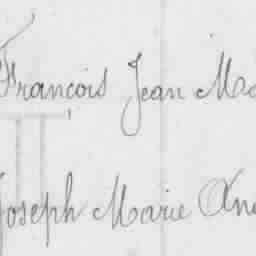 François Jean Ma
Joseph Marie An